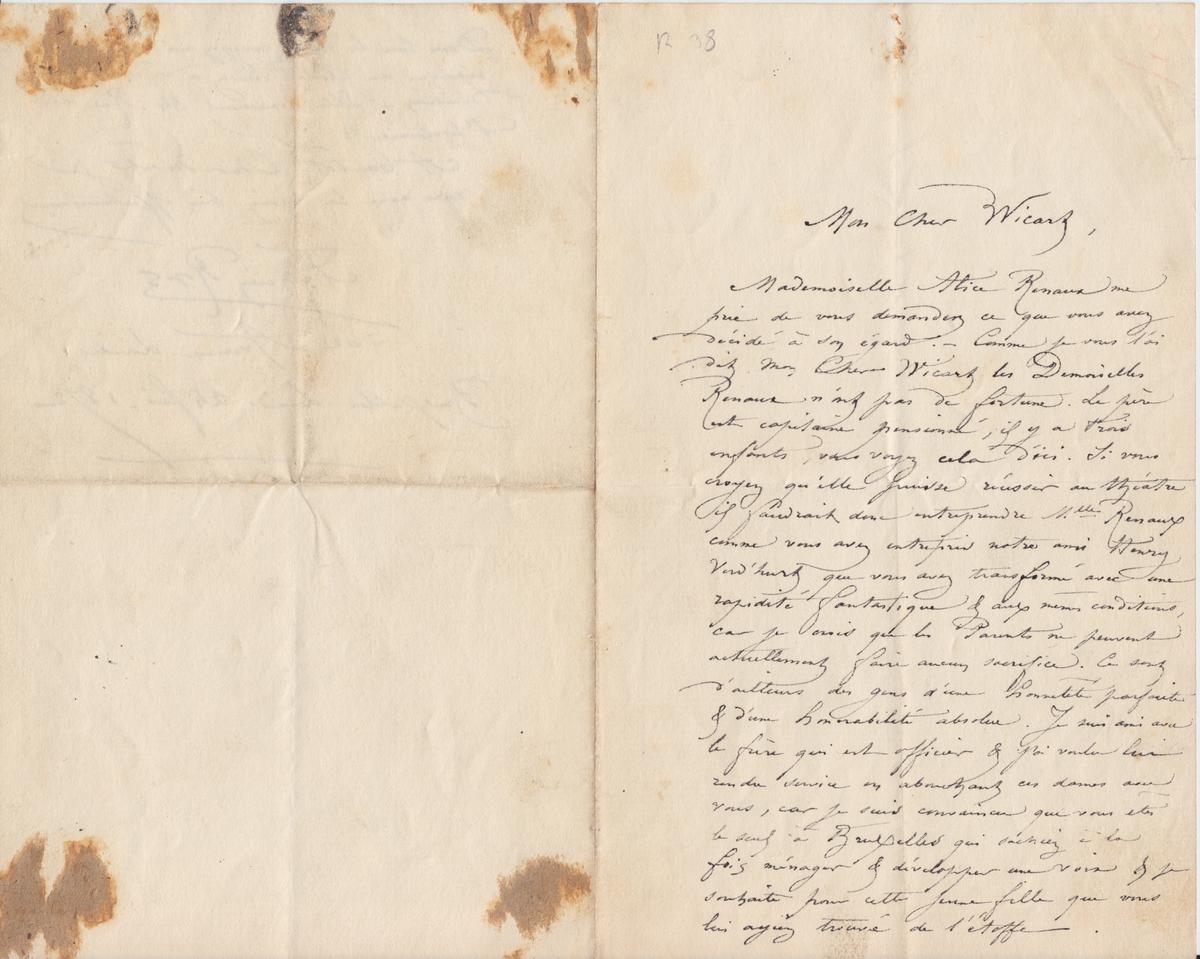 R 38
Mon Cher Wicart,
Mademoiselle Alice Renaux me
prie de vous demander ce que vous avez
décidé à son égard. — Comme je vous l'ai
dit Mon Cher Wicart les Demoiselles
Renaux n'ont pas de fortune. Le père
est capitaine pensionné, il y a trois
enfants, vous voyez cela d'ici. Si vous
croyez qu'elle puisse réussir au théâtre
il faudrait donc entreprendre M.elle Renaux
comme vous avez entrepris notre ami Henry
Verd'hurt que vous avez transformé avec une
rapidité fantastique & aux mêmes conditions,
car je crois que les Parents ne peuvent
actuellement faire aucun sacrifice. Ce sont
d'ailleurs des gens d'une honnêteté parfaite
& d'une honorabilité absolue. Je suis ami avec
le frère qui est officier & j'ai voulu lui
rendre service en abouchant ces dames avec
vous, car je suis convaincu que vous êtes
le seul à Bruxelles qui sachiez à la
fois ménager & développer une voix & je
souhaite pour cette jeune fille que vous
lui ayiez trouvé de l'étoffe.